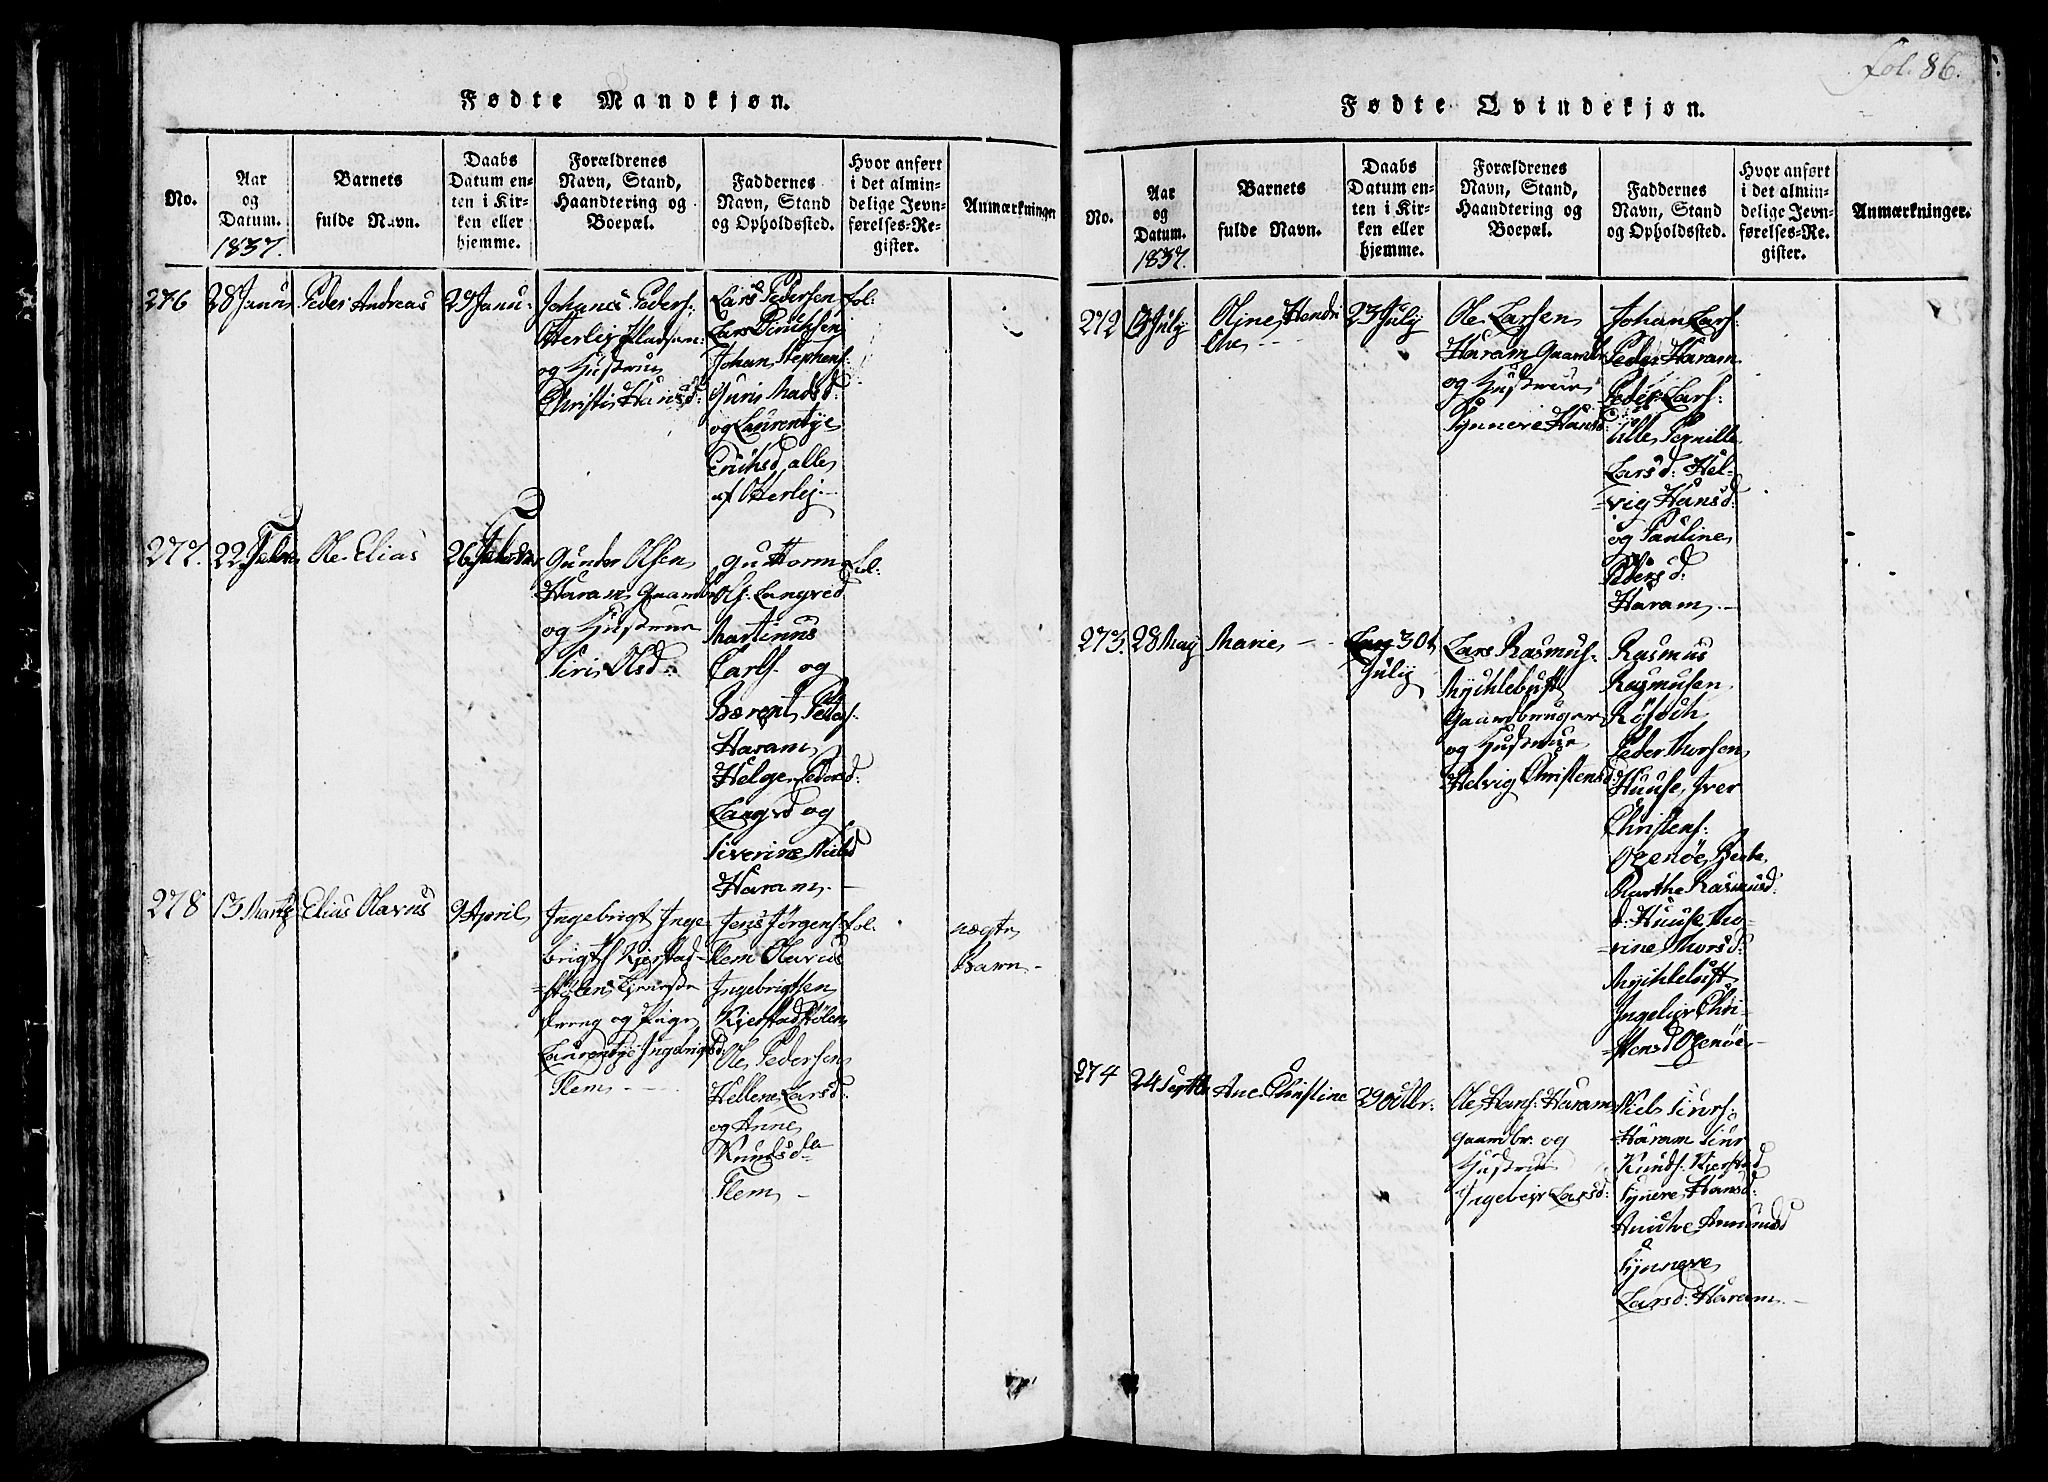 fol. 86.
Fødte Mandkjøn.
No.
Aar
og
Datum.
1837.
Barnets
fulde Navn.
Daabs
Datum en-
ten i Kir-
ken eller
hjemme.
Forældrenes
Navn, Stand,
Haandtering og
Boepæl.
Faddernes
Navn, Stand
og Opholdssted.
Hvor anført
i det almin-
delige Jevn-
førelses-Re-
gister.
Anmærkninger
276
28 Janu
Peder Andreas
29 Janu-
Johanes Peders:
Otterlej
og Hustrue
Christi Hansd:
Lars Pedersen
Lars
Johan Stephens:
Guri Madsd:
og Laurentje
alle
af Otterlej
fol:
277.
22 Febr
Ole Elias
26 Febr
Gunder Olsen
Haram Gaardb
og Hustrue
Siri Olsd:
Guttorm
Ols: Langved
Martinus
Carls. og
Bærent Peders:
Haram
Helge Pedersd:
Langvd og
Siverine Nielsd
Haram.
fol:
278
13 Martz
Elias Olavus
9 April
Ingebrigt Inge
brigts Kjerstad
=stølen
dreng og Pige
Laurentje Ingebrigtsd:
Flem
Jens Jørgens:
Flem Olavus
Ingebrigtsen
Kjerstadstølen
Ole Pedersen
Hellene Larsd:
og Anne
Knudsd
Flem -
fol.
uægte
Barn -
Fødte Qvindekjøn.
No.
Aar
og
Datum.
1837.
Barnets
fulde Navn.
Daabs
Datum en-
ten i Kir-
ken eller
hjemme.
Forældrenes
Navn, Stand,
Haandtering og
Boepæl.
Faddernes
Navn, Stand
og Opholdssted.
Hvor anført
i det almin-
delige Jevn-
førelses-Re-
gister.
Anmærkninger.
272
13 July
Oline Hendri
che
23 July
Ole Larsen
Haram Gaardbr
og Hustrue
Synneve Hansd
Johan Lars:
Peder Haram
Peder Lars:
Ulle Pernille
Larsd: Hel-
=vig Hansd:
og Pauline
Pedersd:
Haram. -
273.
28 May
Marie
30t
July
Lars Rasmus:
Myklebust
Gaardbruger
og Hustrue
Helvig Christensd:
Rasmus
Rasmusen
Røsoch
Peder Thorsen
Huuse, Iver
Christens:
Ogenøe, Beate
Marthe Rasmusd:
d: Huuse, Tho-
=rine Thorsd:
Myklebust
Ingebjr Chri-
=stensd Ogenøe
274
24 Septbr
Ane Christine
29 Octbr:
Ole Hans: Haram
Gaardbr. og
Hustrue
Ingebejr Larsd:
Niels Siurs:
Haram Siur
Knuds: Kjerstad
Synneve Hansd:
Amundsd
Synneve
Larsd: Haram. -